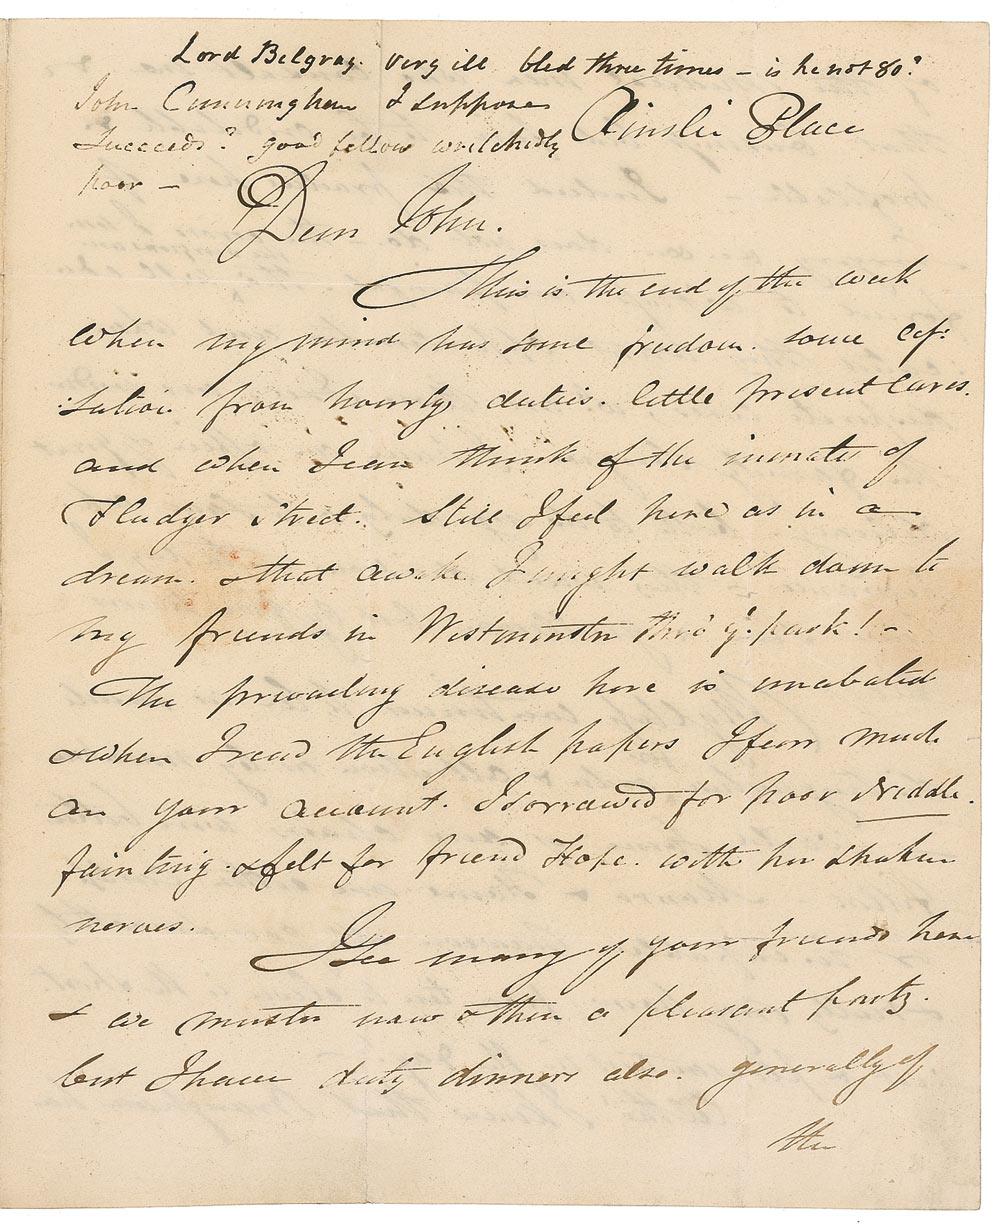 Lord Belgray. very ill bled three times – is he not 80?
John Cunningham I suppose
Succeeds? good fellow wretchedly
poor –
Ainslie Place
Dear John.
This is the end of the week
when my mind has some freedom. some ces:
:sation from hourly duties. little present cares.
and when I can think of the inmates of
Fludyer Street. Still I feel here as in a
dream. & that awake I might walk down to
my friends in Westminster thro' ye. park! –
The prevailing disease here is unabated
& when I read the English papers I fear much
on your account. I sorrowed for poor driddle.
fainting. & felt for friend Hope. with her shaken
nerves.
I see many of your friends here
& we muster now & then a pleasant party.
but I have duty dinners also. generally of
the